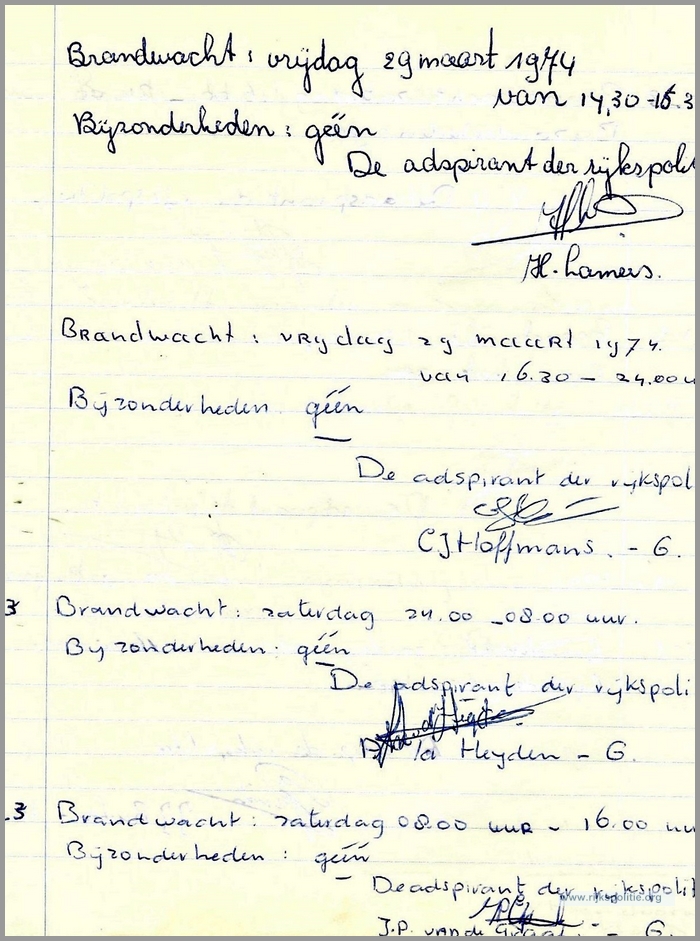 Brandwacht : vrijdag 29 maart 1974
van 14,30 - 16.3
Bijzonderheden : géén
De adspirant der rijkspolit
H. Lamers.
Brandwacht : vrijdag 29 maart 1974.
van 16.30 - 24.00 u
Bijzonderheden géén
De adspirant der rijkspol
CJ Hoffmans. - G.
3 Brandwacht : zaterdag 24.00 - 08.00 uur.
Bijzonderheden : géén
De adspirant der rijkspoli
Heyden - G.
.3 Brandwacht : zaterdag 08.00 uur - 16.00 uu
Bijzonderheden : géén
De adspirant der rijkspolit
www.rijkspolitie.org
J.P. van de Graaf. - G.